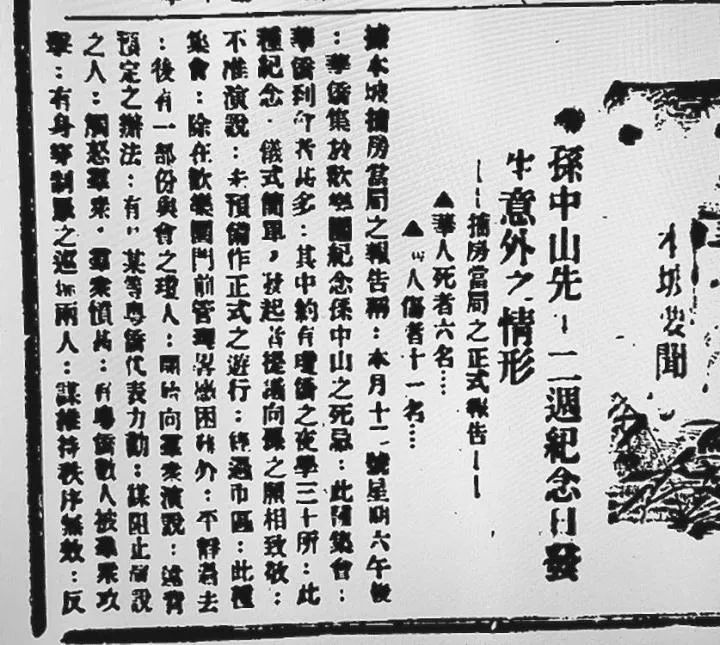 本坡要聞
●孫中山先 二週紀念日發
生意外之情形
——捕房當局之正式報告——
▲華人死者六名…
▲ 人傷者十一名…
據本坡捕房當局之報告稱:本月十二號星期六午後
:華僑集於歡樂園紀念孫中山之死忌:此種集會:
華僑到會者甚多:其中約有瓊僑之夜學三十所:此
種紀念.儀式簡單,發起者提議向孫之願相致敬:
不准演說:未預備作正式之遊行:經過市區:此種
集會:除在歡樂園門前管理畧感困難外:平靜過去
:後有一部份與會之瓊人:開始向羣眾演說:違背
預定之辦法:有 某等粵僑代表力勸:謀阻止演說
之人:觸怒羣眾.羣眾憤甚:有粵僑數人被羣眾攻
擊:有身穿制服之巡 兩人:謀維持秩序無效:反